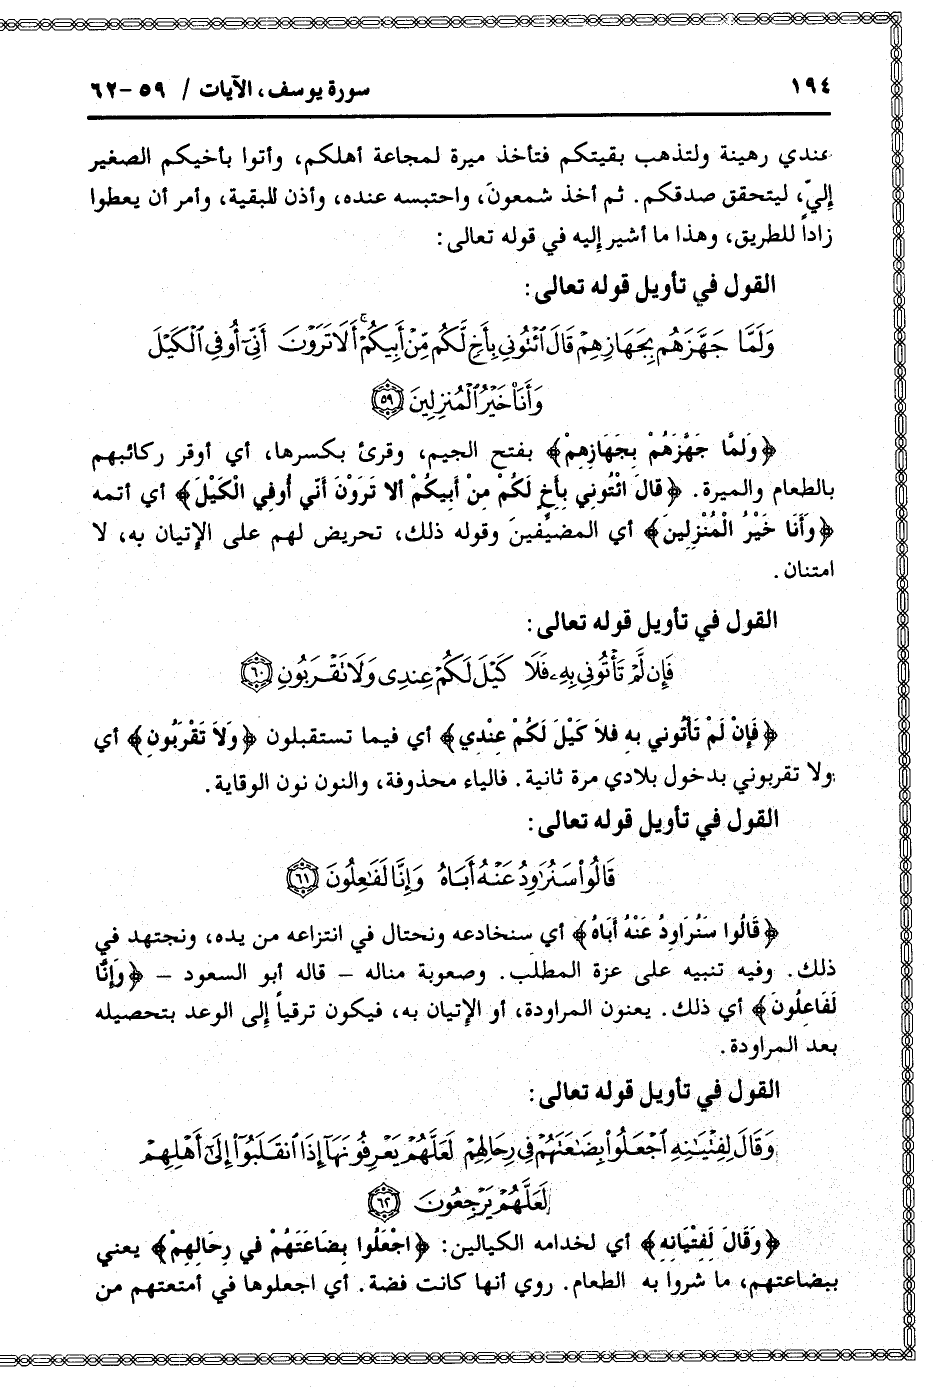 ١٩٤ سورة يوسف، الآيات / ٥٩-٦٢
عندي رهينة ولتذهب بقيتكم فتأخذ ميرة لمجاعة أهلكم، وأتوا بأخيكم الصغير
إليّ، ليتحقق صدقكم. ثم أخذ شمعونَ، واحتبسه عنده، وأذن للبقية، وأمر أن يعطوا
زاداً للطريق، وهذا ما أشير إليه في قوله تعالى:
القول في تأويل قوله تعالى:
وَلَمَّا جَهَّزَهُم بِجَهَازِهِمْ قَالَ ٱئْتُونِي بِأَخٍ لَّكُم مِّنْ أَبِيكُمْ ۚ أَلَا تَرَوْنَ أَنِّيٓ أُوفِي ٱلْكَيْلَ
وَأَنَا۠ خَيْرُ ٱلْمُنزِلِينَ ٥٩
﴿وَلَمَّا جَهَّزَهُمْ بِجَهَازِهِمْ﴾ بفتح الجيم، وقرئ بكسرها، أي أوقر ركائبهم
بالطعام والميرة. ﴿قالَ ائْتُونِي بأخٍ لَكُمْ مِنْ أَبِيكُمْ ألا تَرَوْنَ أَنّي أُوفِي الْكَيْلَ﴾ أي أتمه
﴿وأَنَا خَيْرُ الْمُنْزِلِينَ﴾ أي المضيِّفينَ وقوله ذلك، تحريض لهم على الإتيان به، لا
امتنان.
القول في تأويل قوله تعالى:
فَإِن لَّمْ تَأْتُونِي بِهِۦ فَلَا كَيْلَ لَكُمْ عِندِى وَلَا تَقْرَبُونِ ٦٠
﴿فَإنْ لَمْ تَأْتُوني بهِ فلاَ كَيْلَ لَكُمْ عِنْدِي﴾ أي فيما تستقبلون ﴿وَلاَ تَقْرَبُونِ﴾ أي
ولا تقربوني بدخول بلادي مرة ثانية. فالياء محذوفة، والنون نون الوقاية.
القول في تأويل قوله تعالى:
قَالُوا۟ سَنُرَٰوِدُ عَنْهُ أَبَاهُ وَإِنَّا لَفَٰعِلُونَ ٦١
﴿قَالُوا سَنُرَاوِدُ عَنْهُ أَبَاهُ﴾ أي سنخادعه ونحتال في انتزاعه من يده، ونجتهد في
ذلك. وفيه تنبيه على عزة المطلب. وصعوبة مناله – قاله أبو السعود – ﴿وَإِنَّا
لَفَاعِلُونَ﴾ أي ذلك. يعنون المراودة، أو الإتيان به، فيكون ترقياً إلى الوعد بتحصيله
بعد المراودة.
القول في تأويل قوله تعالى:
وَقَالَ لِفِتْيَٰنِهِ ٱجْعَلُوا۟ بِضَٰعَتَهُمْ فِي رِحَالِهِمْ لَعَلَّهُمْ يَعْرِفُونَهَآ إِذَا ٱنقَلَبُوٓا۟ إِلَىٰٓ أَهْلِهِمْ
لَعَلَّهُمْ يَرْجِعُونَ ٦٢
﴿وَقَالَ لَفِتْيَانِه﴾ أي لخدامه الكيالين: ﴿اجْعَلُوا بِضَاعَتَهُمْ في رِحَالِهِمْ﴾ يعني
ببضاعتهم، ما شروا به الطعام. روي أنها كانت فضة. أي اجعلوها في أمتعتهم من